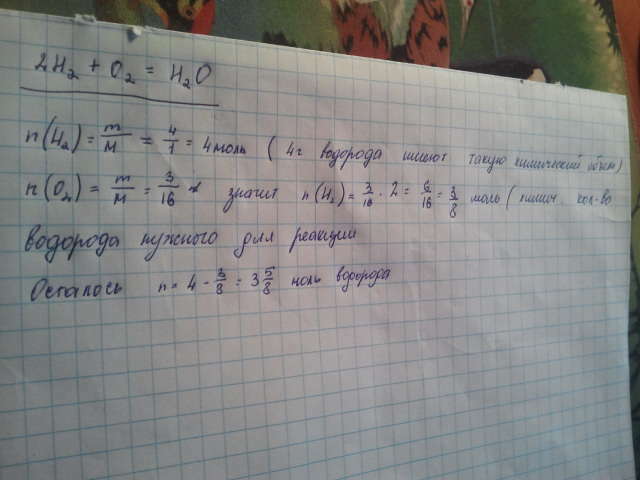 2H₂ + O₂ = H₂O
n(H₂) = m/M = 4/1 = 4 моль (4г водорода имеют такую химический объем)
n(O₂) = m/M = 3/16 значит n(H₂) = 3/16 · 2 = 6/16 = 3/8 моль (химич. кол-во
водорода нужного для реакции
Осталось n = 4 - 3/8 = 3 5/8 моль водорода